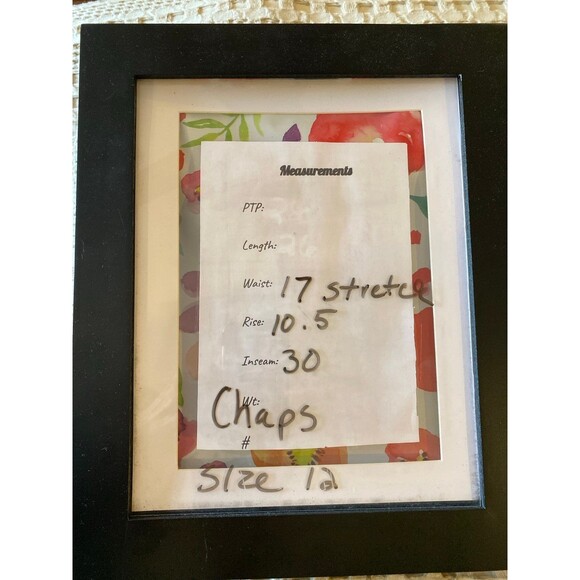 Measurements
PTP:
Length:
Waist: 17 stretch
Rise: 10.5
Inseam: 30
Wt:
Chaps
#
Size 12